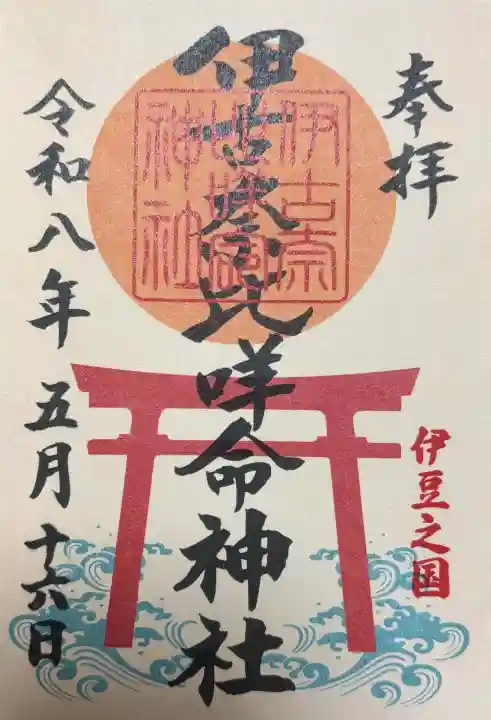 奉拝
伊豆之国
伊古奈比咩命神社
伊古奈
比咩命
神社
令和八年五月十六日